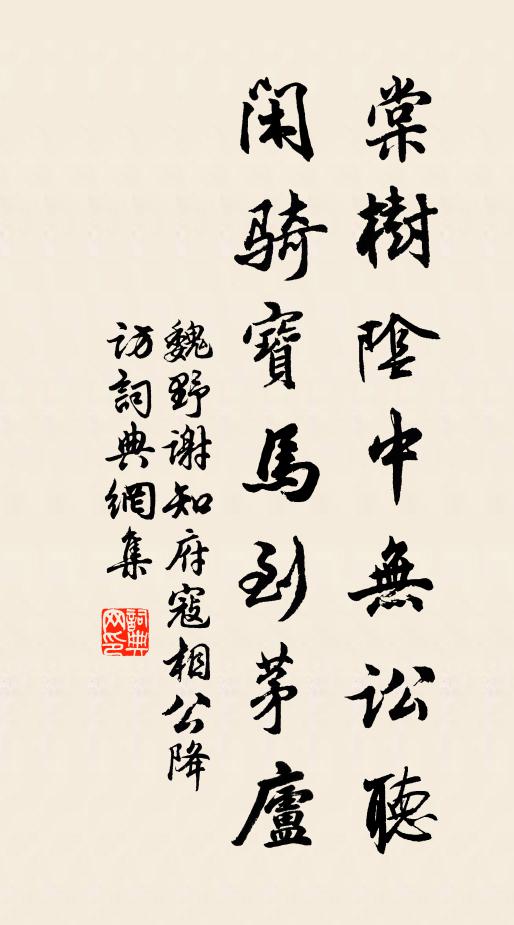 棠樹陰中無訟聽
閑騎寶馬到茅廬
魏野謝知府寇相公降
訪詞典網集
詞典网印